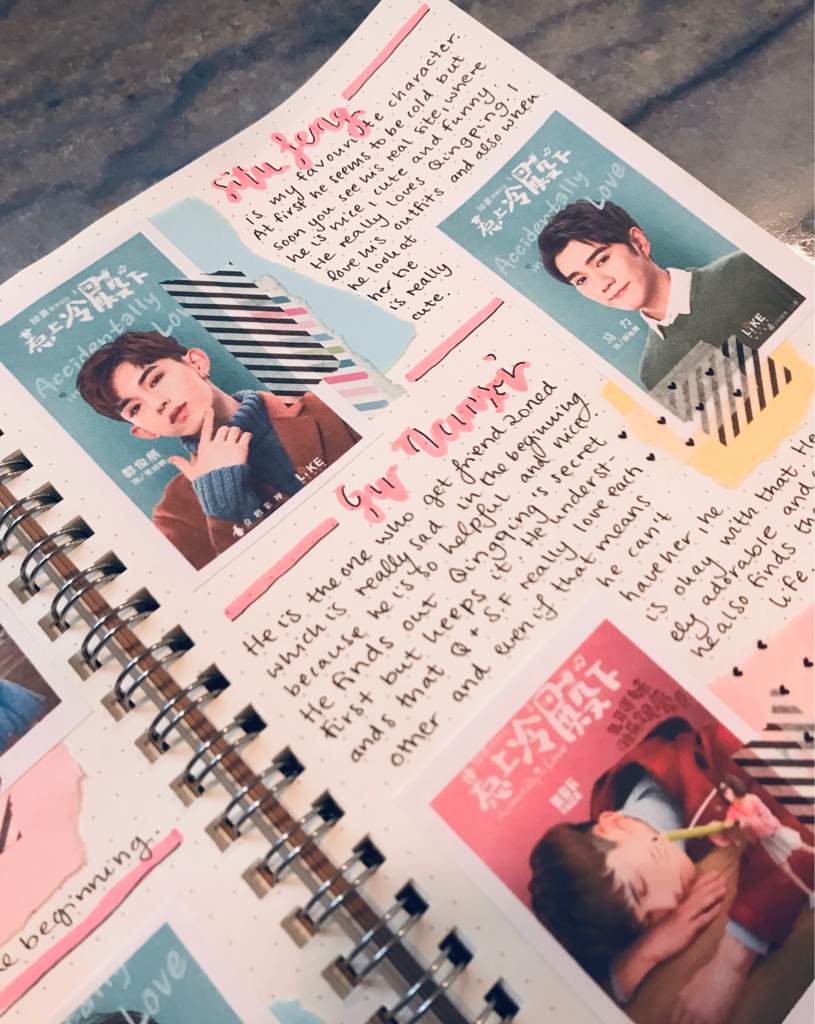 Situ Feng
is my favourite character.
At first he seems to be cold but
soon you see his real site, where
he is nice, cute and funny.
He really loves Qingping. I
love his outfits and also when
he look at
her he
is really
cute.
惹上冷殿下
Accidentally
in
Love
LIKE
惹上冷殿下
Accidentally
in
Love
马力
LIKE
Gu
He is the one who get friend zoned
which is really sad in the beginning
because he is so helpful and nice.
He finds out Qingqing's secret
first but keeps it. He underst-
ands that Q + S.F really love each
other and even if that means
he can't
have her he
is okay with that. He
ely adorable and
he also finds th
life.
惹上冷殿下
Accidentally in Love
e beginning.
Love